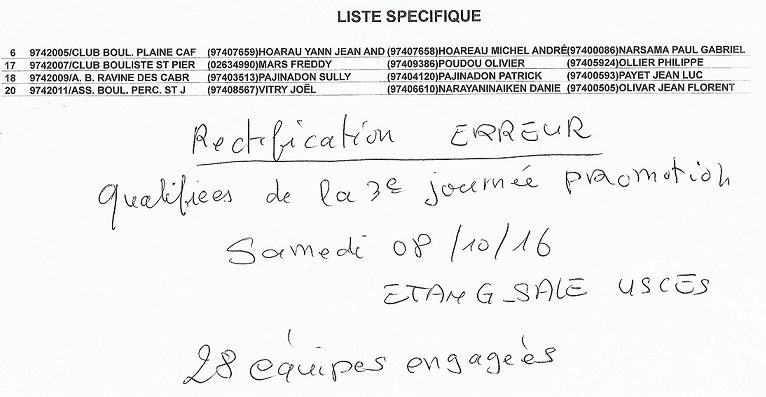 LISTE SPECIFIQUE
6 9742005/CLUB BOUL. PLAINE CAF (97407659)HOARAU YANN JEAN AND (97407658)HOAREAU MICHEL ANDRÉ (97400086)NARSAMA PAUL GABRIEL
17 9742007/CLUB BOULISTE ST PIER (02634990)MARS FREDDY (97409386)POUDOU OLIVIER (97405924)OLLIER PHILIPPE
18 9742009/A. B. RAVINE DES CABR (97403513)PAJINADON SULLY (97404120)PAJINADON PATRICK (97400593)PAYET JEAN LUC
20 9742011/ASS. BOUL. PERC. ST J (97408567)VITRY JOËL (97406610)NARAYANINAIKEN DANIE (97400505)OLIVAR JEAN FLORENT
Rectification ERREUR
Qualifiées de la 3e journée promotion
Samedi 08/10/16
ETANG_SALE USCES
28 équipes engagées